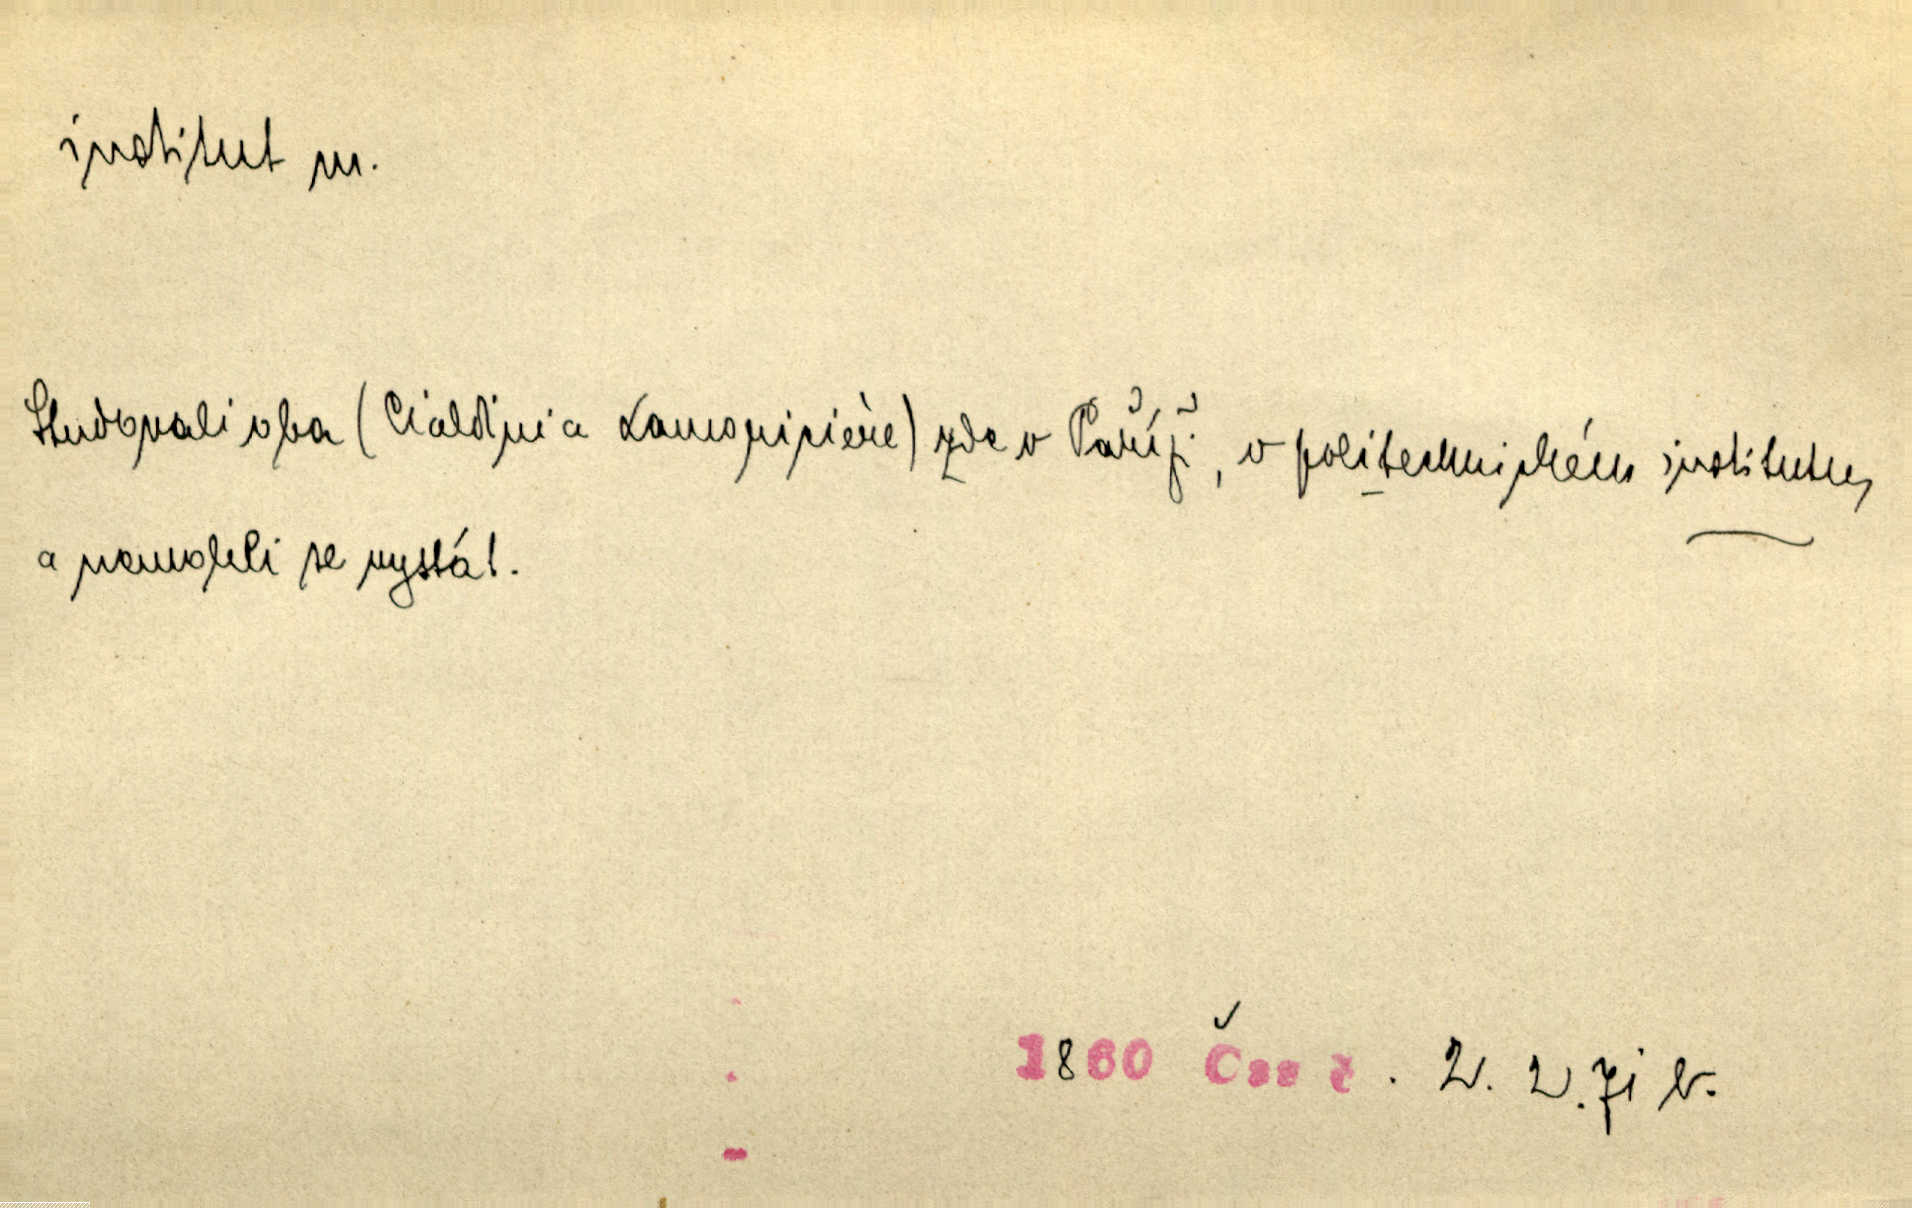 institut m.
Studovali oba (Cialdini a Lamoricière) zde v Paříži, v politechnickém institutu,
a nemohli se vystát.
1860 Čas č. 2. 2. zi b.